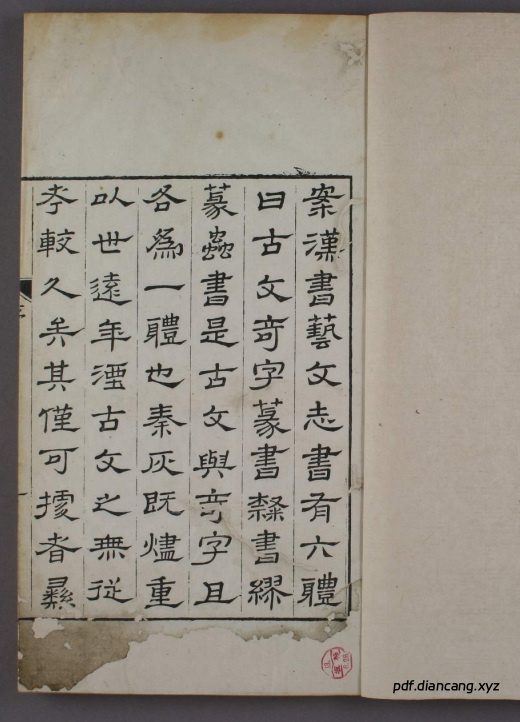 案漢書藝文志書有六體
曰古文奇字篆書隸書繆
篆蟲書是古文與奇字且
各為一體也秦灰既燼重
以世遠年湮古文之無從
考較久矣其僅可據者彝
pdf.diancang.xyz